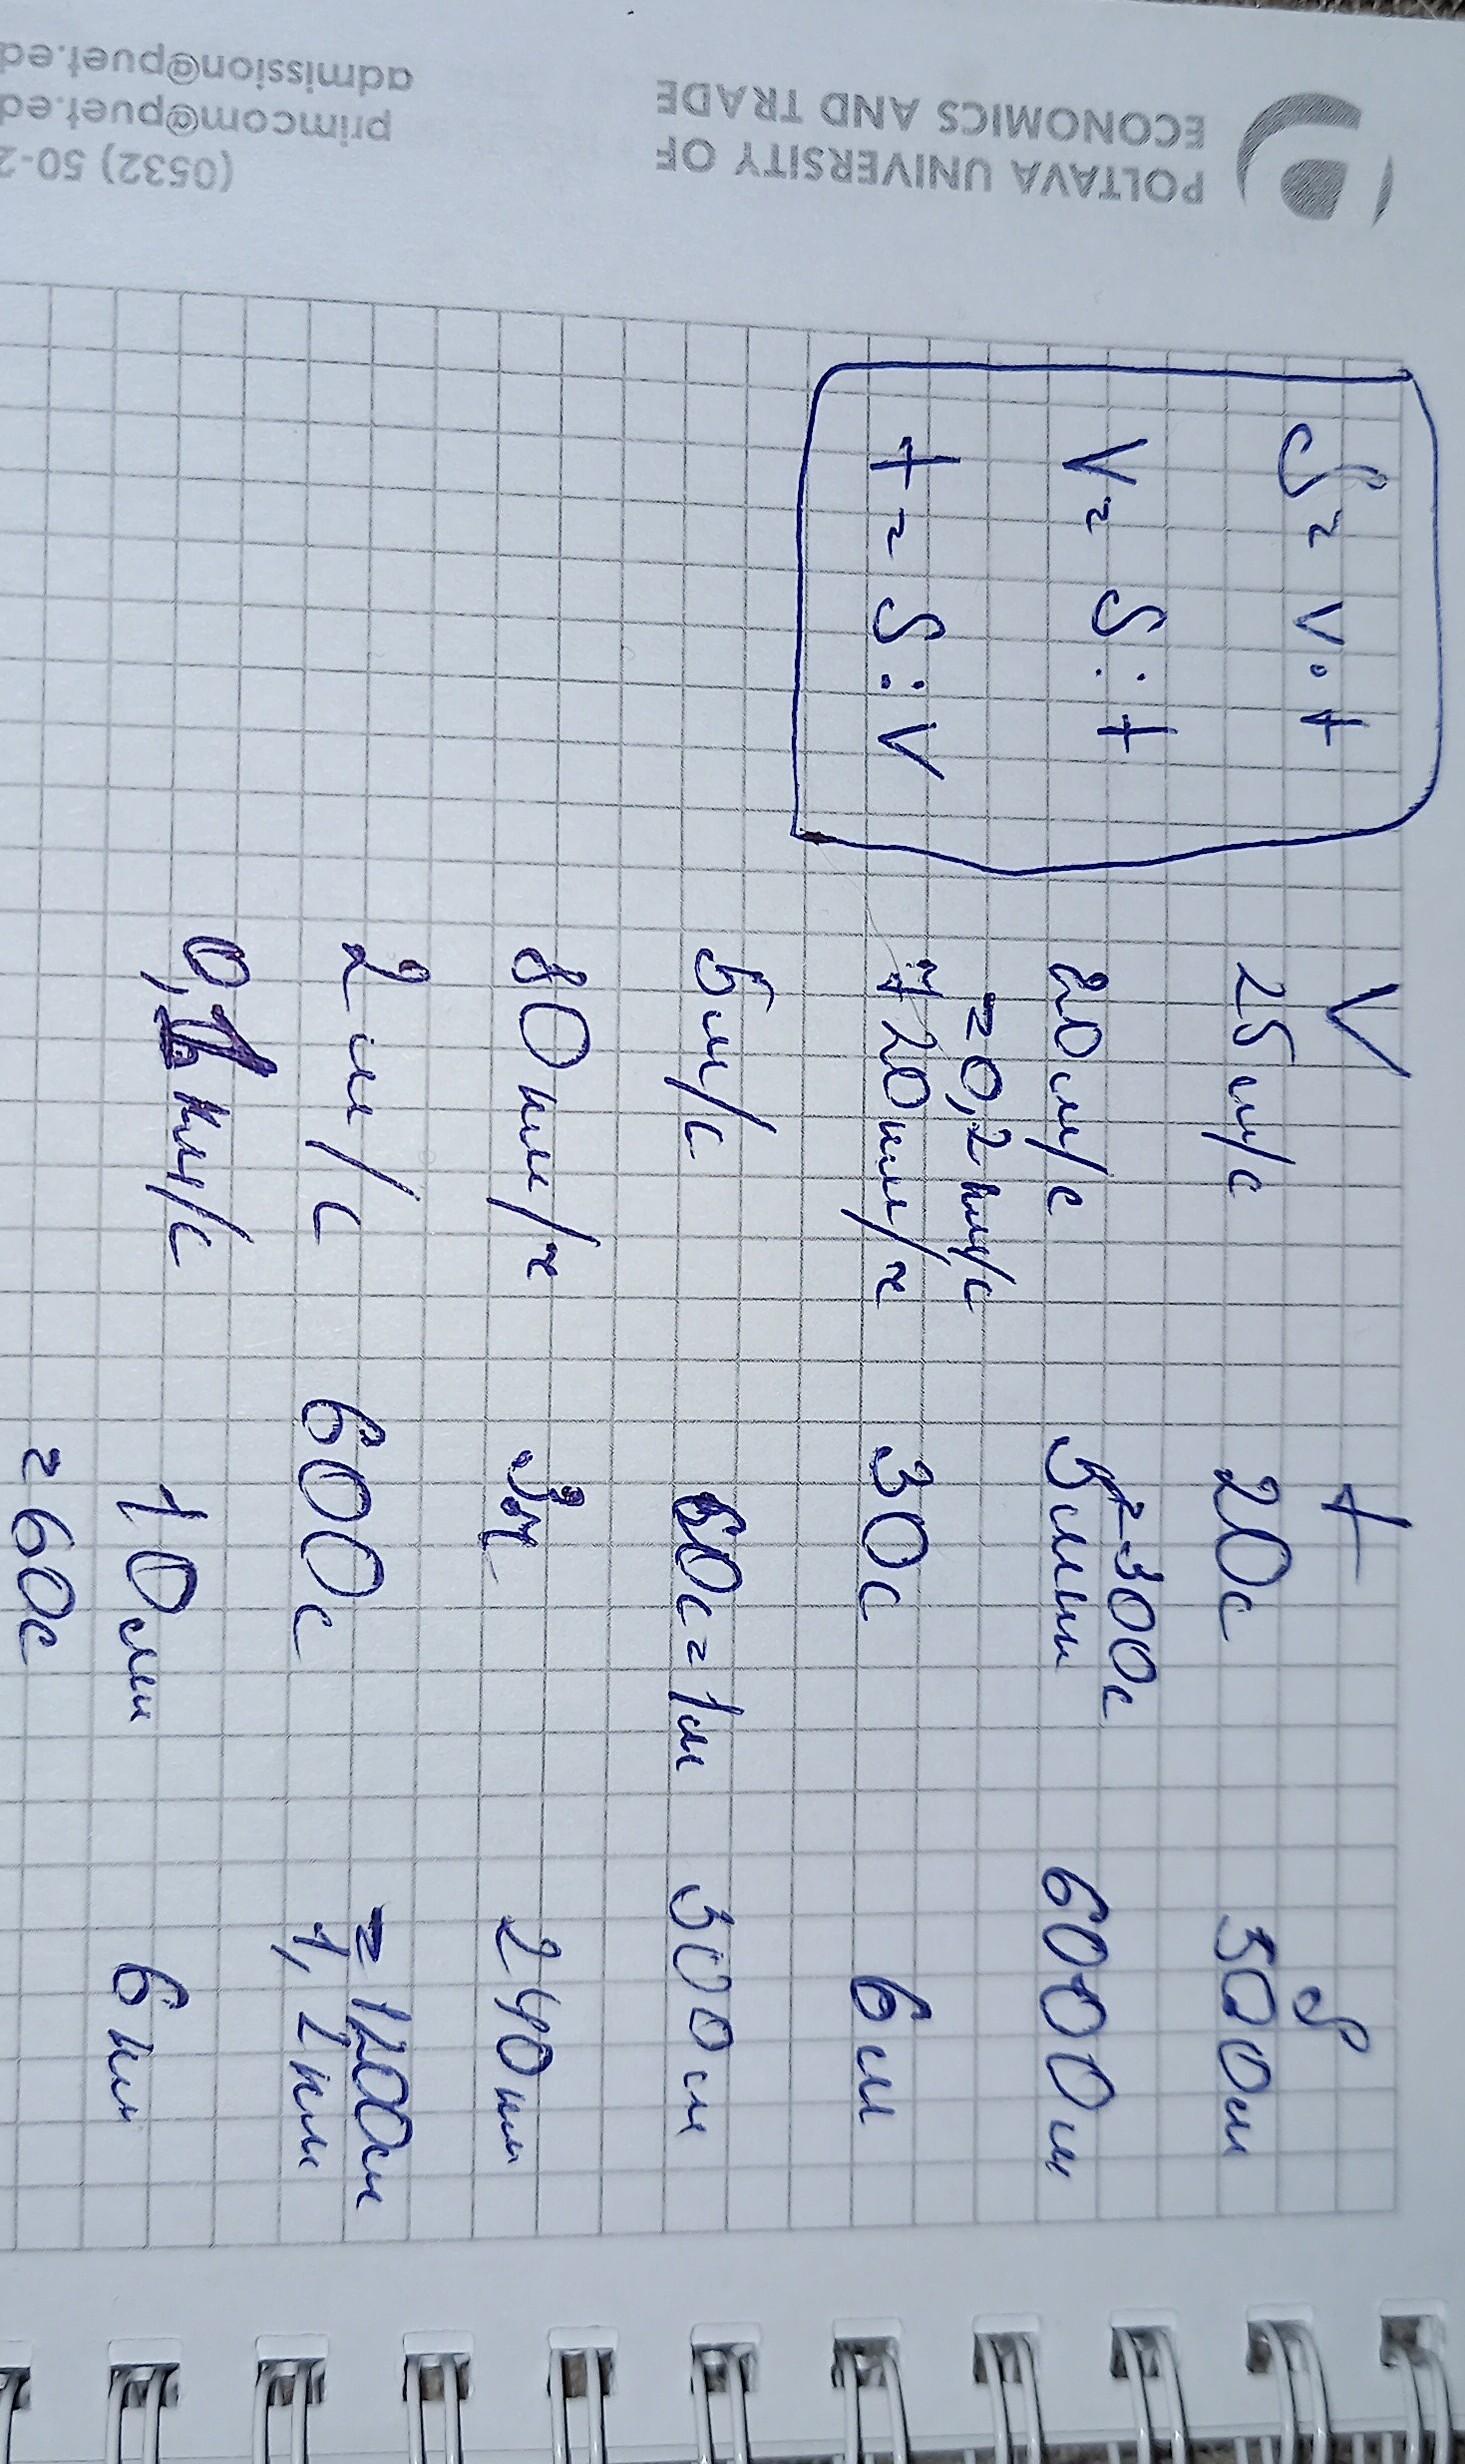 POLTAVA UNIVERSITY OF
ECONOMICS AND TRADE
(0532) 50-2
primcom@puet.ed
admission@puet.ed
S = v · t
V = S : t
t = S : V
V t S
25 м/с 20с 500м
= 300с
20 м/с 5мин 6000м
= 0,2 км/с
720км/ч 30с 6м
5м/с 60с = 1м 300м
80км/ч 3ч 240км
= 1200м
2м/с 600с 1,2км
0,1 км/с 10мин 6км
= 60с